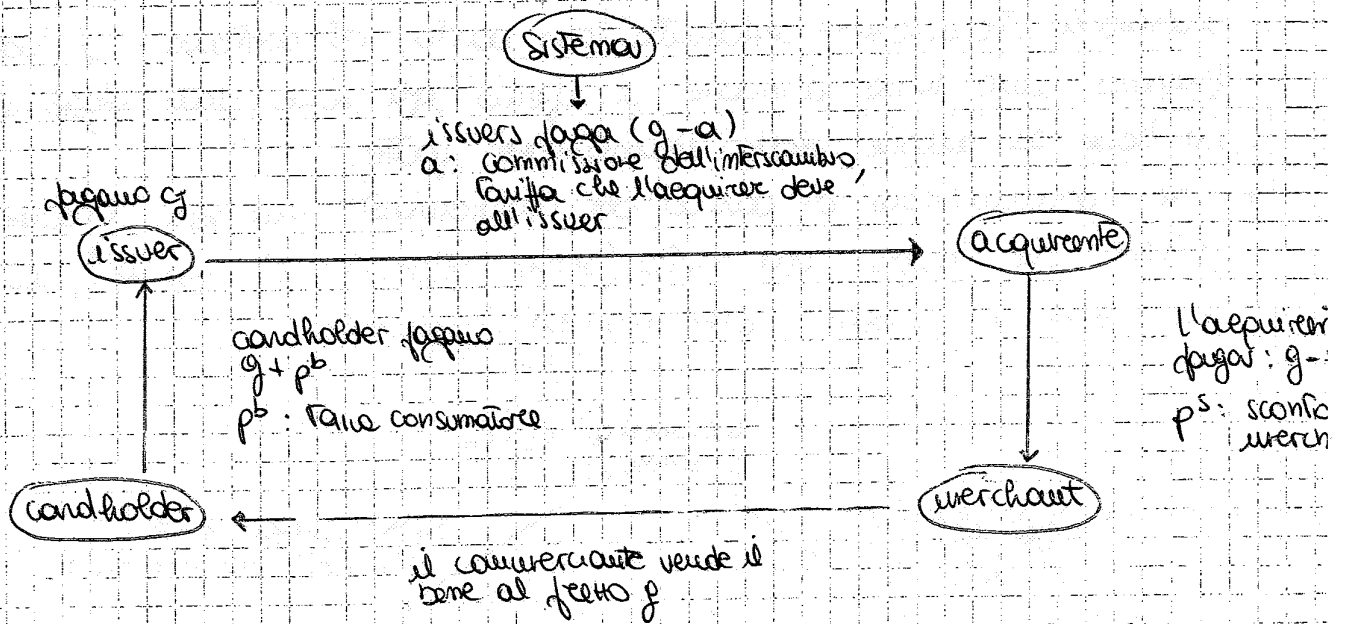 Sistema
issuers paga (g-a)
a: commissione dell'interscambio,
tariffa che l'acquirer deve
all'issuer
pagano g
issuer
acquirente
cardholder pagano
g + p^b
p^b: tassa consumatore
l'acquirer
paga: g-
p^s: sconto
merch
cardholder
merchant
il commerciante vende il
bene al prezzo p